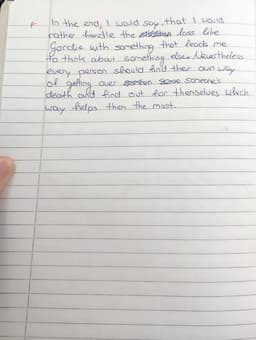 In the end, I would say, that I would
rather handle the loss like
Gordie with something that leads me
to think about something else. Nevertheless
every person should find their own way
of getting over someone's
death and find out for themselves which
way helps them the most.